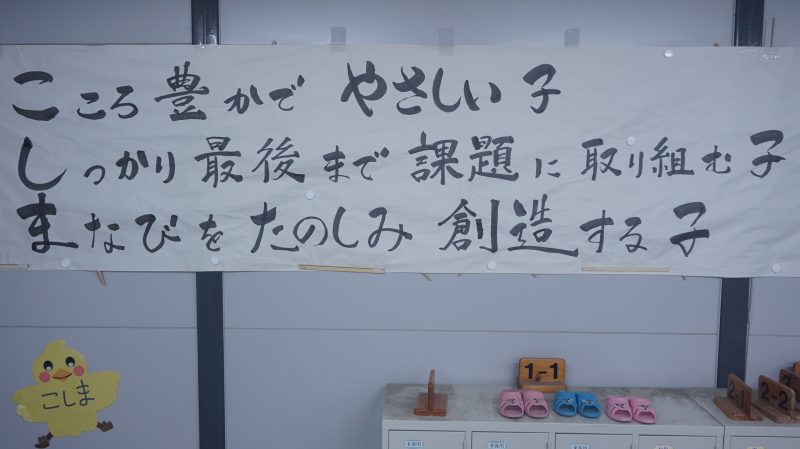 こころ豊かで やさしい子
しっかり最後まで課題に取り組む子
まなびをたのしみ創造する子
こしま
1-1
2-1
2-2
来客用
来客用